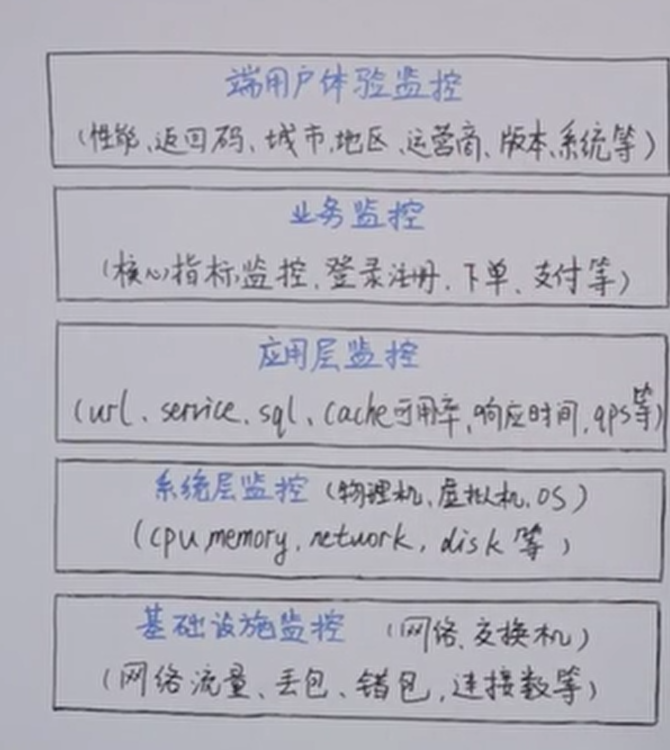 端用户体验监控
(性能、返回码、城市、地区、运营商、版本、系统等)
业务监控
(核心指标监控、登录注册、下单、支付等)
应用层监控
(url、service、sql、cache可用率,响应时间,qps等)
系统层监控 (物理机、虚拟机、OS)
(cpu,memory,network,disk等)
基础设施监控 (网络、交换机)
(网络流量、丢包、错包,连接数等)